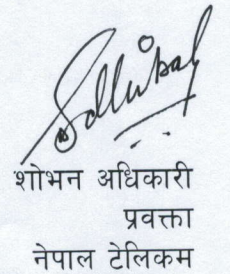 शोभन अधिकारी
प्रवक्ता
नेपाल टेलिकम